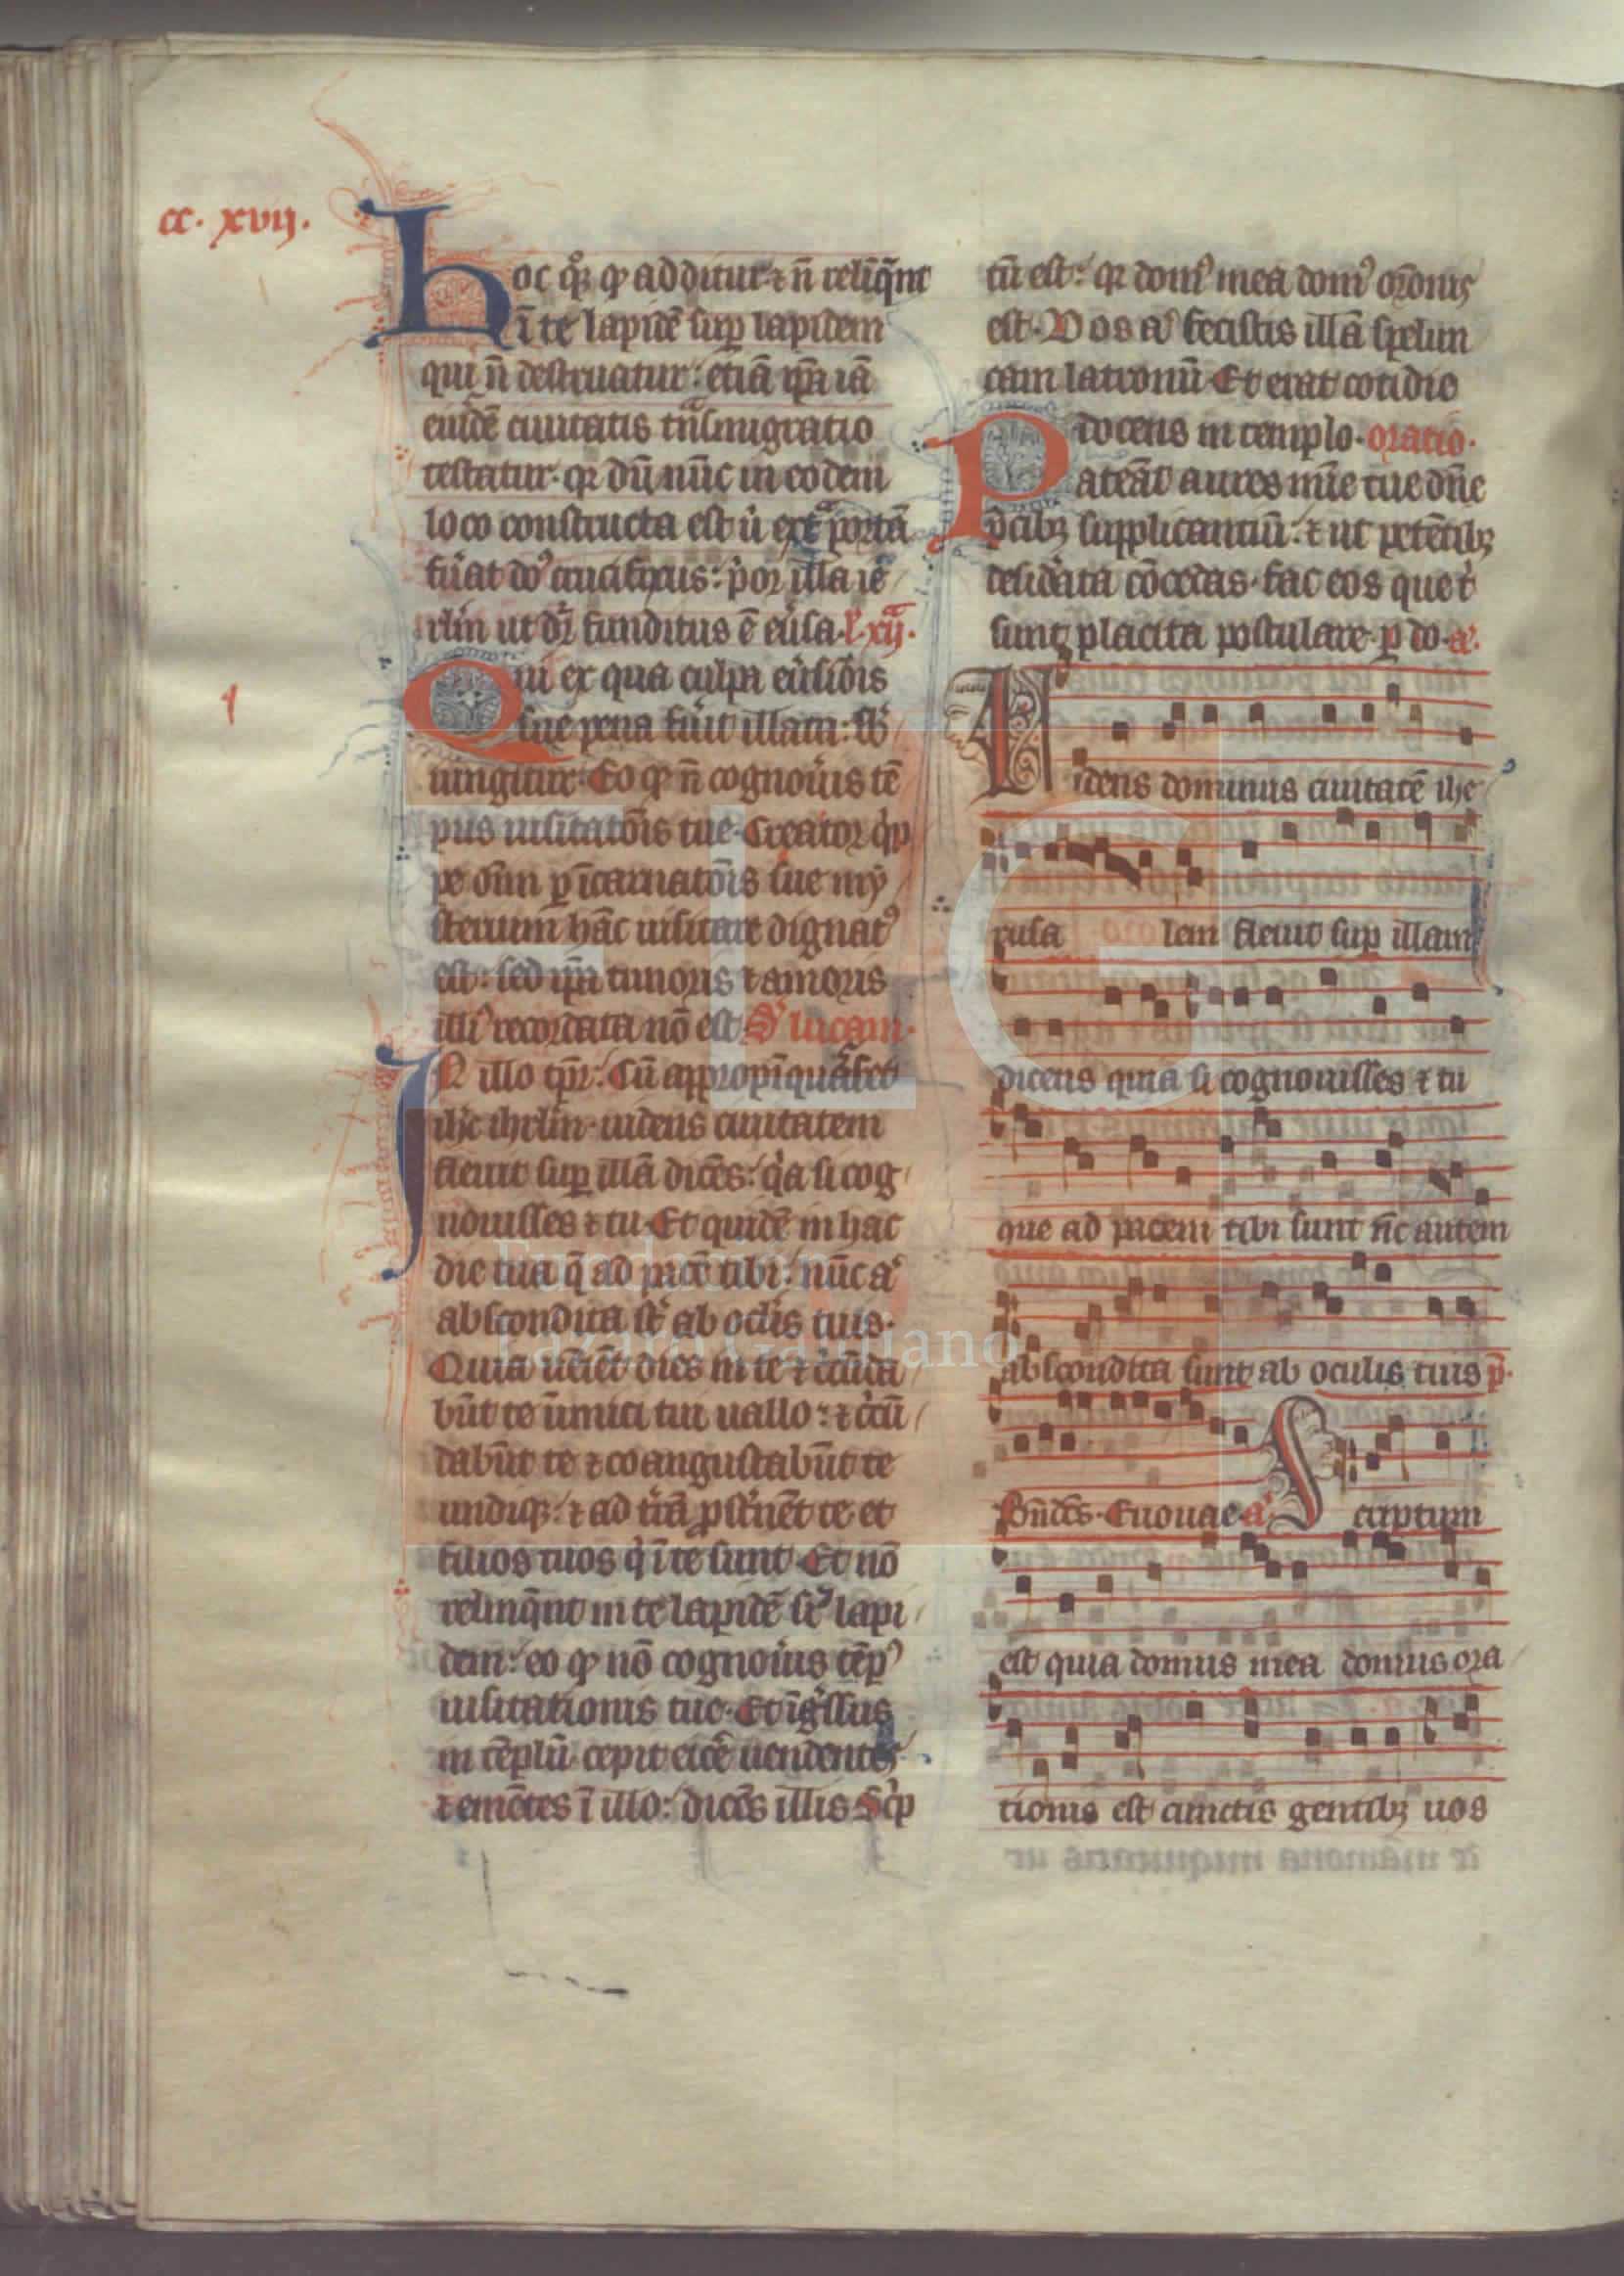 cc. xvij.
hoc q̄ꝫ ꝙ additur ⁊ n̄ relīq̄nt
ī te lapidē suꝑ lapidem
qui n̄ destruatur: etiā ip̄a iā
eiusdē ciuitatis tn̄smigratio
testatur. qꝛ dū nūc in eodem
loco constructa est ú extᵃ portā
fúat dō crucifixus: p̓or illa ie
rl̄m ut dr̄ funditus ē eúsa. l̓. xij.
Qui ex qua culpa eúsiōis
sue pena fúit illata: sb̓
iungitur. Eo ꝙ n̄ cognoúis tē
pus uisitatōis tue. Creator q̓p
pe oīm ꝑ īcarnatōis sue my
sterium hāc uisitare dignatꝰ
est: sed ip̄a timoris ⁊ amoris
illiꝰ recordata nō est. S' lucam.
IN illo tp̄r: Cū appropīquāset
ih̓c ihrl̄m. uidens ciuitatem
fleuit suꝑ illā dicēs: q̓a si cog
nouisses ⁊ tu. Et quidē in hac
die tua q̄ ad pacē tibi: nūc aꝰ
abscondita st̄ ab oclis tuis.
Quia uēiēt dies in te ⁊ ic̓ūda
būt te inimici tui uallo: ⁊ c̓cū
dabūt te ⁊ coangustabūt te
undiqꝫ: ⁊ ad t̓rā ꝓst̓nēt te. et
filios tuos q̓ ī te sunt. Et nō
relinq̄nt in te lapidē sꝰ lapi
dem: eo ꝙ nō cognoúis tēpꝰ
uisitationis tue. Et īgᵉssus
in tēplū cepit eicē uendentes
⁊ emētes ī illo: dicēs illis Sc̓p
tū est: qꝛ domꝰ mea domꝰ orōnis
est. Vos aꝰ fecistis illā spelun
cam latronū. Et erat cotidie
docens in templo. oratio.
Pateāt aures mīe tue dn̄e
p̄cibꝫ supplicantiū: ⁊ ut petētibꝫ
desiďata cōcedas. fac eos que t'
sunt placita postulare. ꝑ do. aꝰ.
Uidens dominus ciuitatē ihe
rusa lem fleuit suꝑ illam
dicens quia si cognouisses ⁊ tu
que ad pacem tibi sunt nc̄ autem
abscondita sunt ab oculis tuis p̄.
Euouae. aꝰ. Scriptum
est quia domus mea domus ora
tionis est cunctis gentibꝫ uos
FLG
Fundación
Lázaro Galdiano